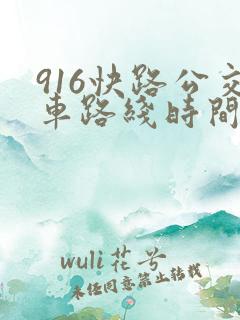 916快路公交
車路綫時間
wuli花兮
未经同意禁止转载